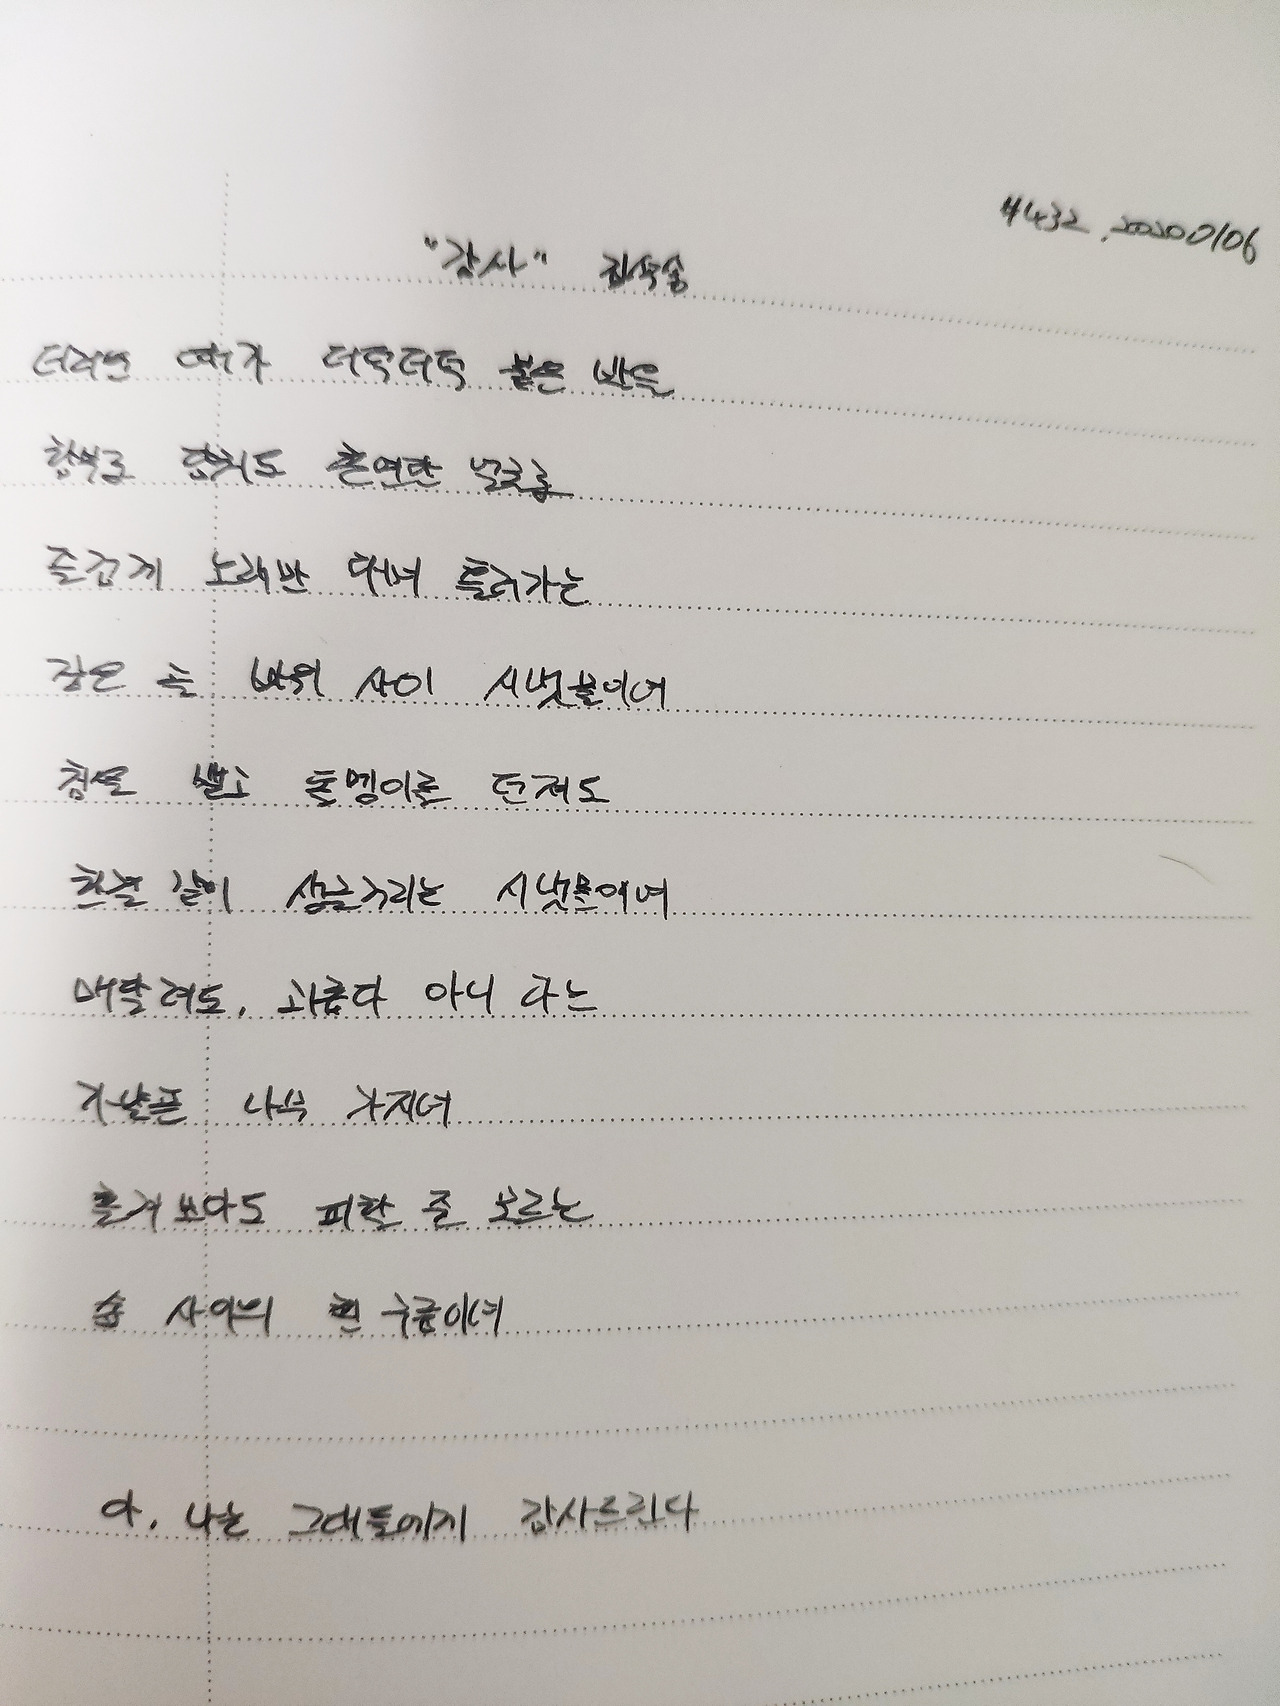 #432. 20200106
"감사" 김수송
더러운 때가 더덕더덕 붙은 발을
함부로 담궈도 혼연한 얼굴로
즐겁게 노래만 하며 흘러가는
깊은 산 바위 사이 시냇물이여
침을 뱉고 돌멩이를 던져도
한결 같이 싱글거리는 시냇물이여
매달려도, 괴롭다 아니 하는
가냘픈 나무 가지여
흘겨보아도 피할 줄 모르는
숲 사이의 흰 구름이여
아, 나는 그대들에게 감사드린다